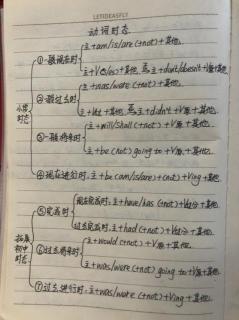 LETIDEASFLY
动词时态
小学时态
①一般现在时
主+am/is/are(+not)+其他.
主+V(s/es)+其他. 或主+don't/doesn't+V原+其他.
②一般过去时
主+was/were(+not)+其他.
主+Ved+其他. 或主+didn't+V原+其他.
③一般将来时
主+will/shall(+not)+V原+其他.
主+be(+not)going to+V原+其他.
④现在进行时: 主+be(am/is/are)+(not)+Ving+其他.
拓展初中时态
⑤完成时
现在完成时: 主+have/has(+not)+V过分+其他.
过去完成时: 主+had(+not)+V过分+其他.
⑥过去将来时
主+would(+not)+V原+其他.
主+was/were(+not)going to+V原+其他.
⑦过去进行时: 主+was/were(+not)+Ving+其他.